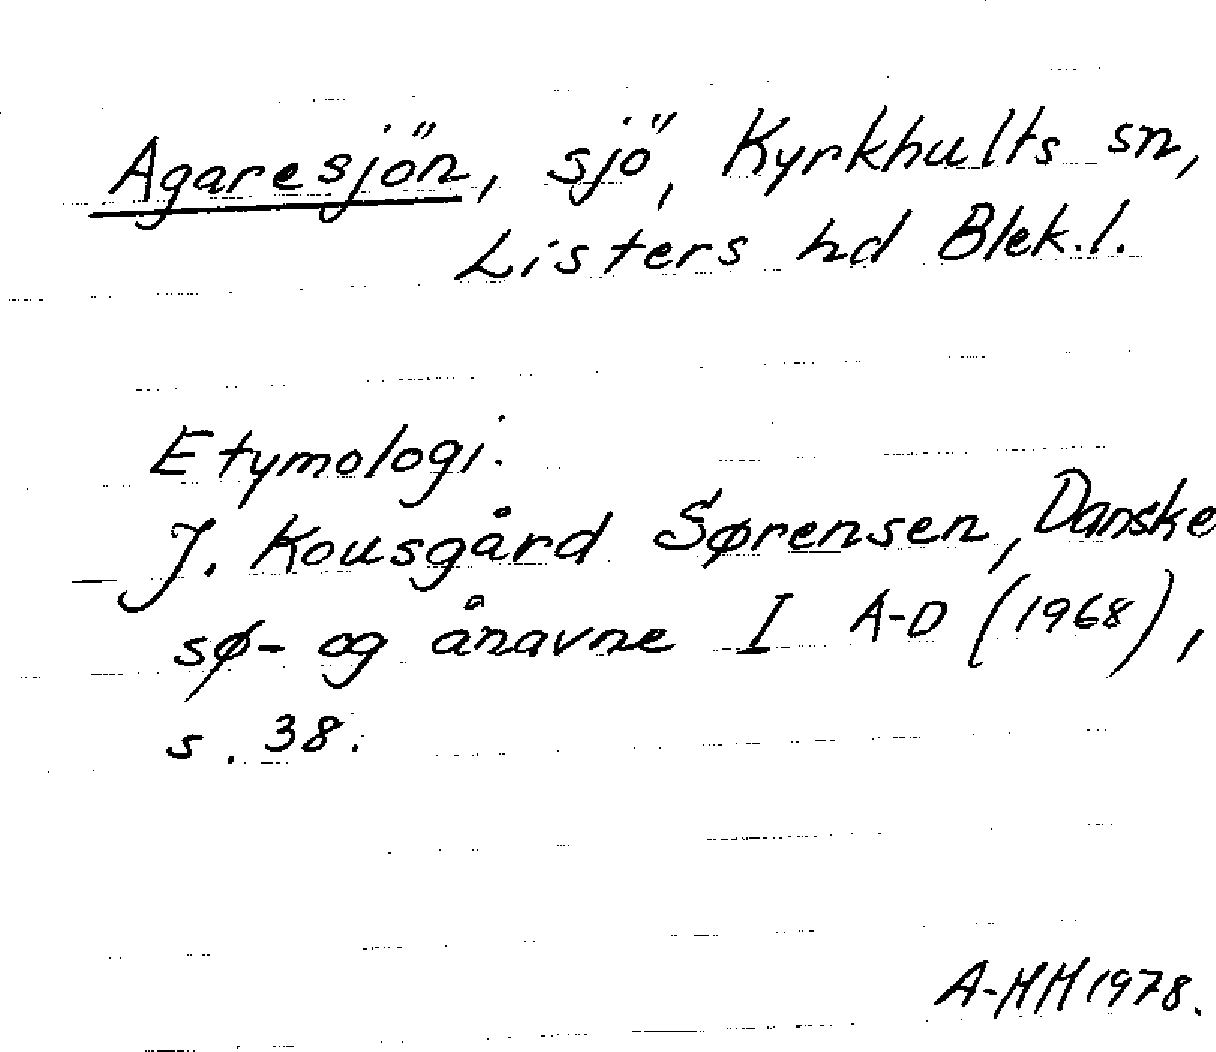 Agaresjön, sjö, Kyrkhults sn,
Listers hd Blek.l.
Etymologi.
J. Kousgård Sørensen, Danske
sø- og ånavne I A-D (1968),
s. 38.
A-HH 1978.